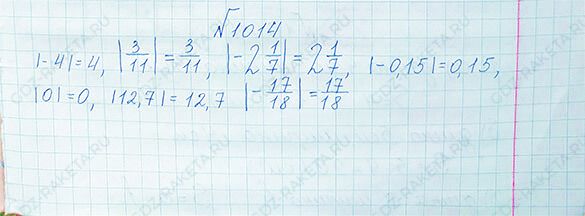 √1014
|-4|=4, |3/11|=3/11, |-2 1/7|=2 1/7, |-0,15|=0,15,
|0|=0, |12,7|=12,7 |-17/18|=17/18
GDZ-RAKETA.RU